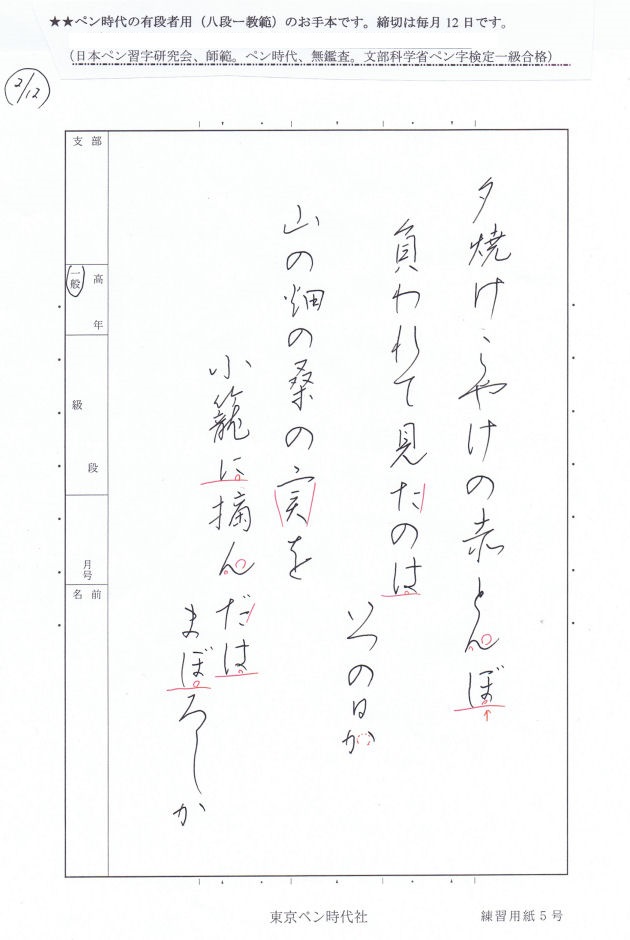 ★★ペン時代の有段者用（八段ー教範）のお手本です。締切は毎月12日です。
（日本ペン習字研究会、師範。ペン時代、無鑑査。文部科学省ペン字検定一級合格）
2/12
支部
高
一般
年
級
段
月号
名前
夕焼けこやけの赤とんぼ
負われて見たのは
いつの日か
山の畑の桑の実を
小籠に摘んだは
まぼろしか
東京ペン時代社
練習用紙5号